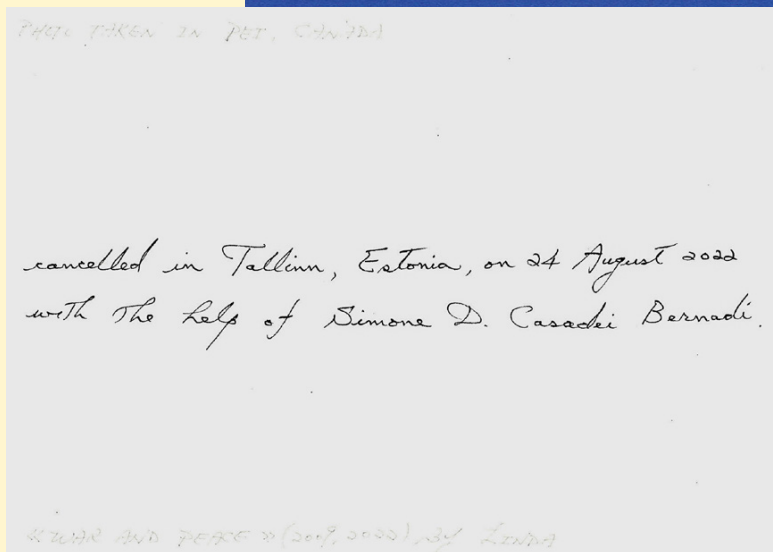 PHOTO TAKEN IN PEI, CANADA
cancelled in Tallinn, Estonia, on 24 August 2022
with the help of Simone D. Casadei Bernadi.
«WAR AND PEACE» (2009, 2022) by LINDA